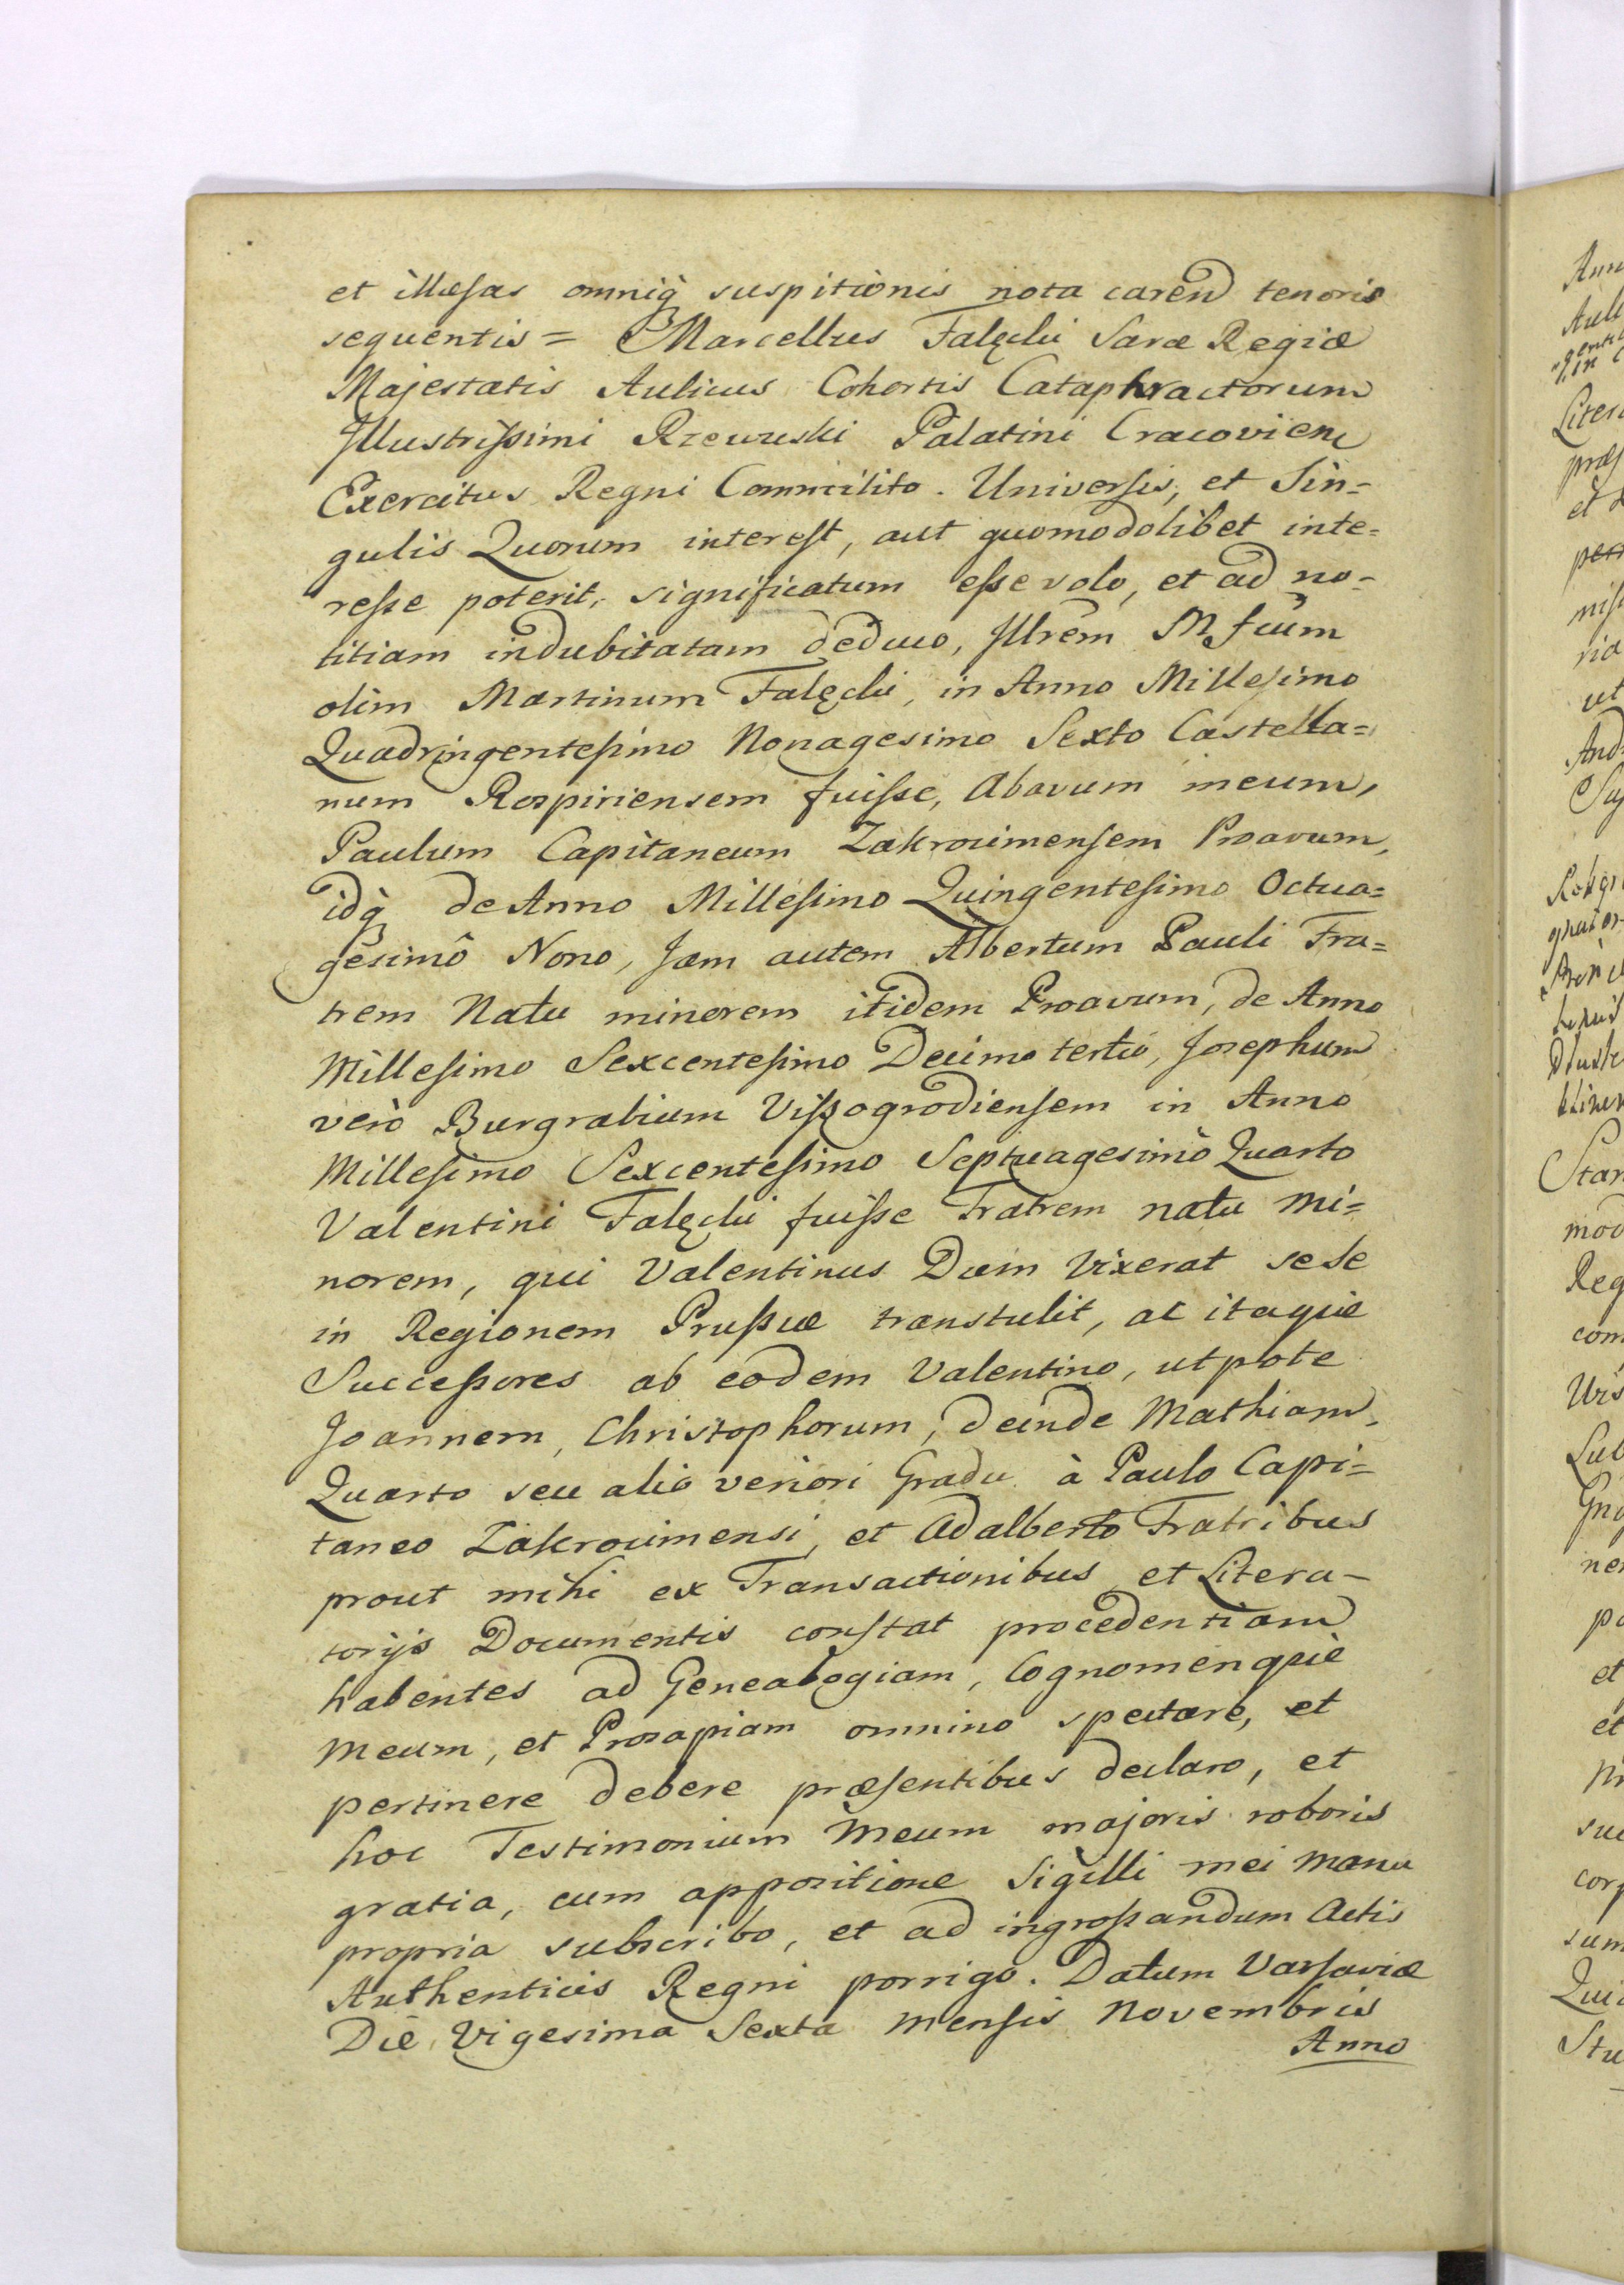 et illæsas omniq̀ suspitionis nota carend tenoris
sequentis = Marcellus Falęcki Saræ Regiæ
Majestatis Aulicus Cohortis Cataphractorum
Illustrissimi Rzewuski Palatini Cracovien
Exercitus Regni Commilito. Universis, et Sin=
gulis Quorum interest, aut quomodolibet inte=
resse poterit, significatum esse volo, et ad no=
titiam indubitatam deduco, Illrem M. fcum
olim Martinum Falęcki, in Anno Millesimo
Quadringentesimo Nonagesimo Sexto Castella=
num Rospiriensem fuisse, Abavum meum,
Paulum Capitaneum Zakrocimensem Proavum,
idq̀ de Anno Millesimo Quingentesimo Octua=
gesimô Nono, Jam autem Albertum Pauli Fra=
trem Natu minorem itidem Proavum, de Anno
Millesimo Sexcentesimo Decimo tertio, Josephum
verò Burgrabium Viszogrodiensem in Anno
Millesimo Sexcentesimo Septuagesimò Quarto
Valentini Falęcki fuisse Fratrem natu mi=
norem, qui Valentinus Dum Vixerat sese
in Regionem Prussiæ transtulit, ac itaque
Successores ab eodem Valentino, utpote
Joannem, Christophorum, deinde Mathiam,
Quarto seu alio veriori Gradu à Paulo Capi=
taneo Zakrocimensi, et Adalberto Fratribus
prout mihi ex Transactionibus et Litera=
torijs Documentis constat procedentiam
habentes ad Genealogiam, Cognomenquè
Meum, et Prosapiam omnino spectare, et
pertinere debere præsentibus declaro, et
hoc Testimonium Meum majoris roboris
gratia, cum appositione Sigilli mei manu
propria subscribo, et ad ingrossandum Actis
Authenticis Regni porrigo. Datum Varsaviæ
Die Vigesima Sexta Mensis Novembris
Anno